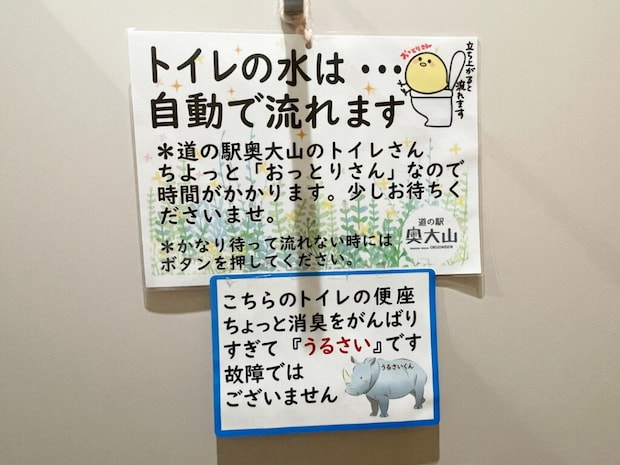 トイレの水は…
自動で流れます
おっとりさん
立ち上がると
流れます
＊道の駅奥大山のトイレさん
ちょっと「おっとりさん」なので
時間がかかります。少しお待ちく
ださいませ。
＊かなり待って流れない時には
ボタンを押してください。
道の駅
奥大山
OKUDAISEN
こちらのトイレの便座
ちょっと消臭をがんばり
すぎて『うるさい』です
故障では
ございません
うるさいくん